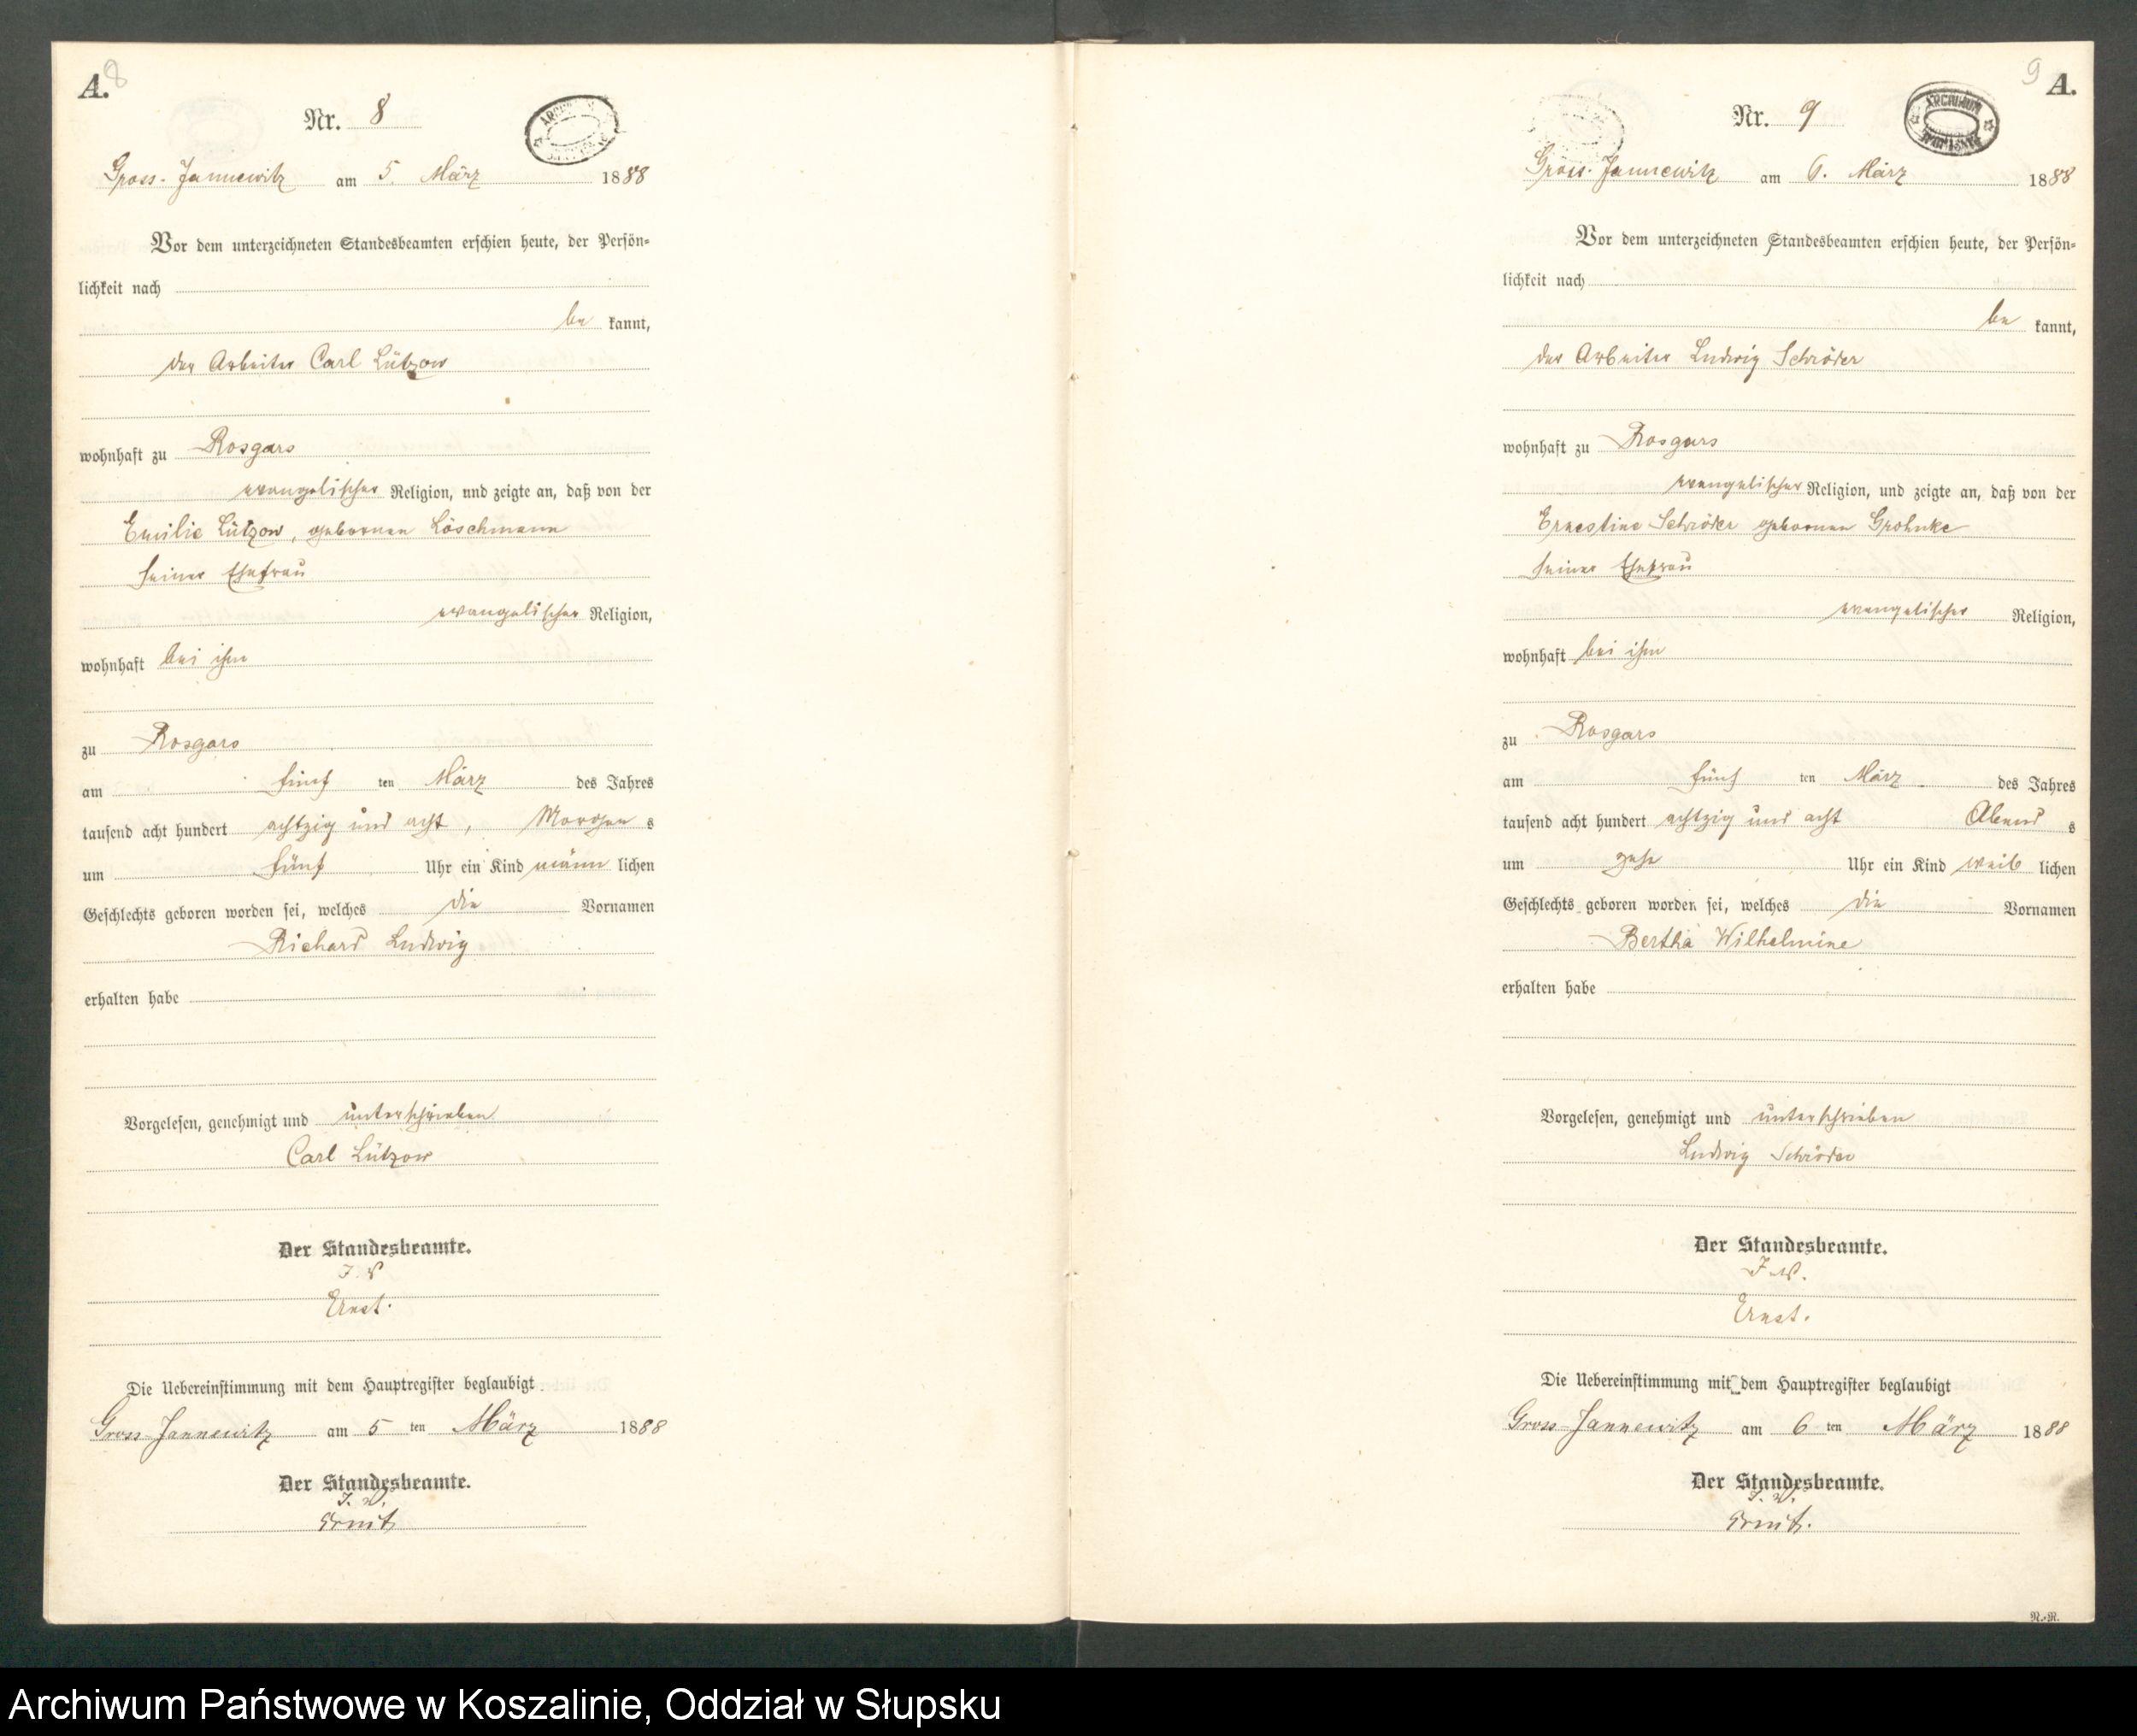 A. 8
Nr. 8
Gross-Jannewitz am 5. März 1888
Vor dem unterzeichneten Standesbeamten erschien heute, der Persön-
lichkeit nach
be kannt,
der Arbeiter Carl Lützow
wohnhaft zu Rosgars
evangelischer Religion, und zeigte an, daß von der
Emilie Lützow, geborenen Löschmann
seiner Ehefrau
evangelischer Religion,
wohnhaft bei ihm
zu Rosgars
am fünf ten März des Jahres
tausend acht hundert achtzig und acht, Morgen s
um fünf Uhr ein Kind männ lichen
Geschlechts geboren worden sei, welches die Vornamen
Richard Ludwig
erhalten habe
Vorgelesen, genehmigt und unterschrieben
Carl Lützow
Der Standesbeamte.
I. V.
Ernst.
Die Uebereinstimmung mit dem Hauptregister beglaubigt
Gross-Jannewitz am 5 ten März 1888
Der Standesbeamte.
I. V.
Ernst
9 A.
Nr. 9
ARCHIWUM
Gross-Jannewitz am 6. März 1888
Vor dem unterzeichneten Standesbeamten erschien heute, der Persön-
lichkeit nach
be kannt,
der Arbeiter Ludwig Schröder
wohnhaft zu Rosgars
evangelischer Religion, und zeigte an, daß von der
Ernestine Schröder geborenen Grohnke
seiner Ehefrau
evangelischer Religion,
wohnhaft bei ihm
zu Rosgars
am fünf ten März des Jahres
tausend acht hundert achtzig und acht Abend s
um zehn Uhr ein Kind weib lichen
Geschlechts geboren worden sei, welches die Vornamen
Bertha Wilhelmine
erhalten habe
Vorgelesen, genehmigt und unterschrieben
Ludwig Schröder
Der Standesbeamte.
I. V.
Ernst.
Die Uebereinstimmung mit dem Hauptregister beglaubigt
Gross-Jannewitz am 6 ten März 1888
Der Standesbeamte.
I. V.
Ernst.
Archiwum Państwowe w Koszalinie, Oddział w Słupsku